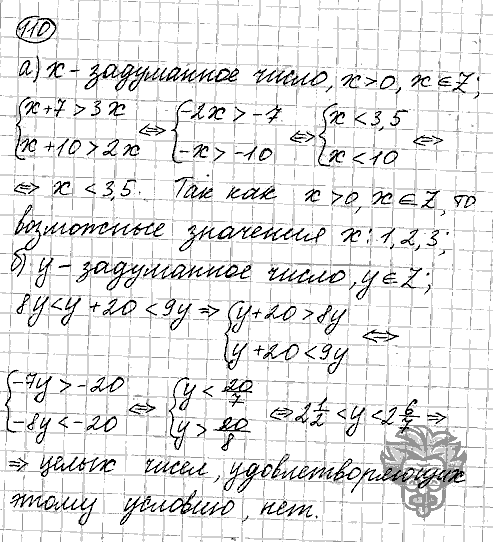 110
а) x - задуманное число, x>0, x∈Z;
{x+7>3x {-2x>-7 {x<3,5
⇔ ⇔ ⇔
{x+10>2x {-x>-10 {x<10
⇔ x<3,5. Так как x>0, x∈Z, то
возможные значения x: 1, 2, 3;
б) y - задуманное число, y∈Z;
8y<y+20<9y ⇒ {y+20>8y
⇔
{y+20<9y
{-7y>-20 {y<20/7
⇔ ⇔ 2 1/2 <y<2 6/7 ⇒
{-8y<-20 {y>20/8
⇒ целых чисел, удовлетворяющих
этому условию, нет.